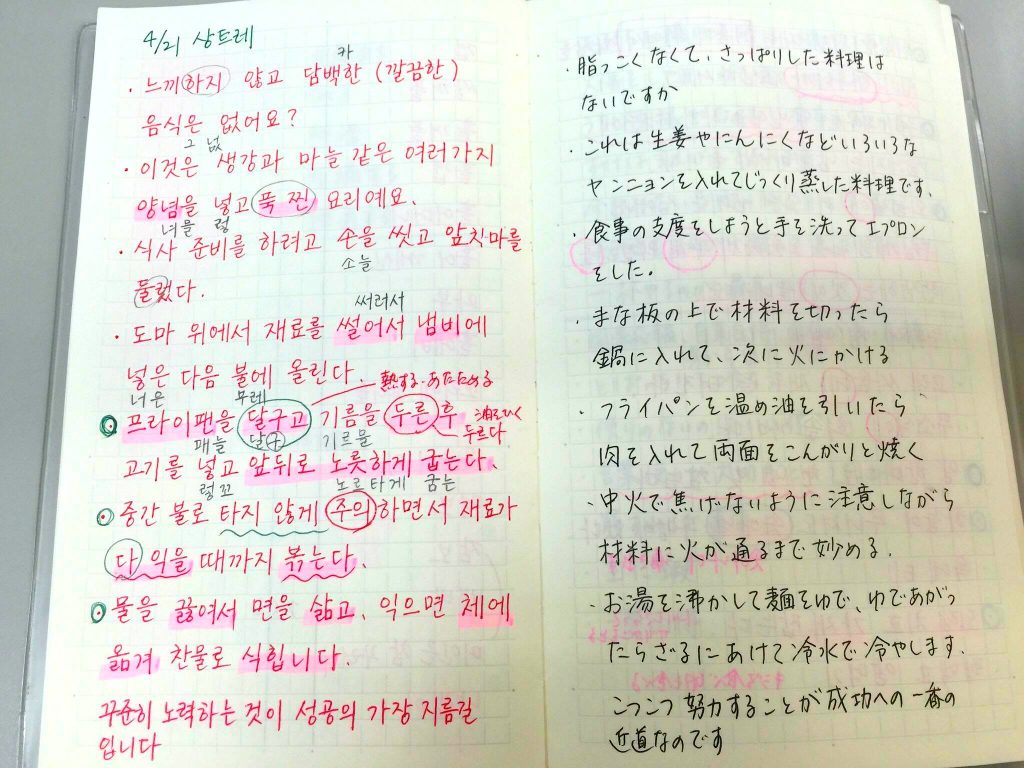 4/21 상트레
카
· 느끼하지 않고 담백한 (깔끔한)
음식은 없어요?
그 넚
· 이것은 생강과 마늘 같은 여러가지
양념을 넣고 푹 찐 요리예요.
녀믈 렁
· 식사 준비를 하려고 손을 씻고 앞칫마를
소늘
둘렀다.
써러서
· 도마 위에서 재료를 썰어서 냄비에
넣은 다음 불에 올린다.
너은 무레
熱する·あたためる
프라이팬을 달구고 기름을 두른 후
油をひく
두르다
패늘 날구 기르믈
고기를 넣고 앞뒤로 노릇하게 굽는다.
렁꼬 노르타게 굼는
중간 불로 타지 않게 주의하면서 재료가
다 익을 때까지 볶는다.
물을 끓여서 면을 삶고, 익으면 체에
옮겨 찬물로 식힙니다.
꾸준히 노력하는 것이 성공의 가장 지름길
입니다
· 脂っこくなくて、さっぱりした料理は
ないですか
· これは生姜やにんにくなどいろいろな
ヤンニョンを入れてじっくり蒸した料理です.
· 食事の支度をしようと手を洗ってエプロン
をした。
· まな板の上で材料を切ったら
鍋に入れて、次に火にかける
· フライパンを温め油を引いたら
肉を入れて両面をこんがりと焼く
· 中火で焦げないように注意しながら
材料に火が通るまで炒める.
· お湯を沸かして麺をゆで、ゆであがっ
たらざるにあけて冷水で冷やします.
こつこつ努力することが成功への一番の
近道なのです